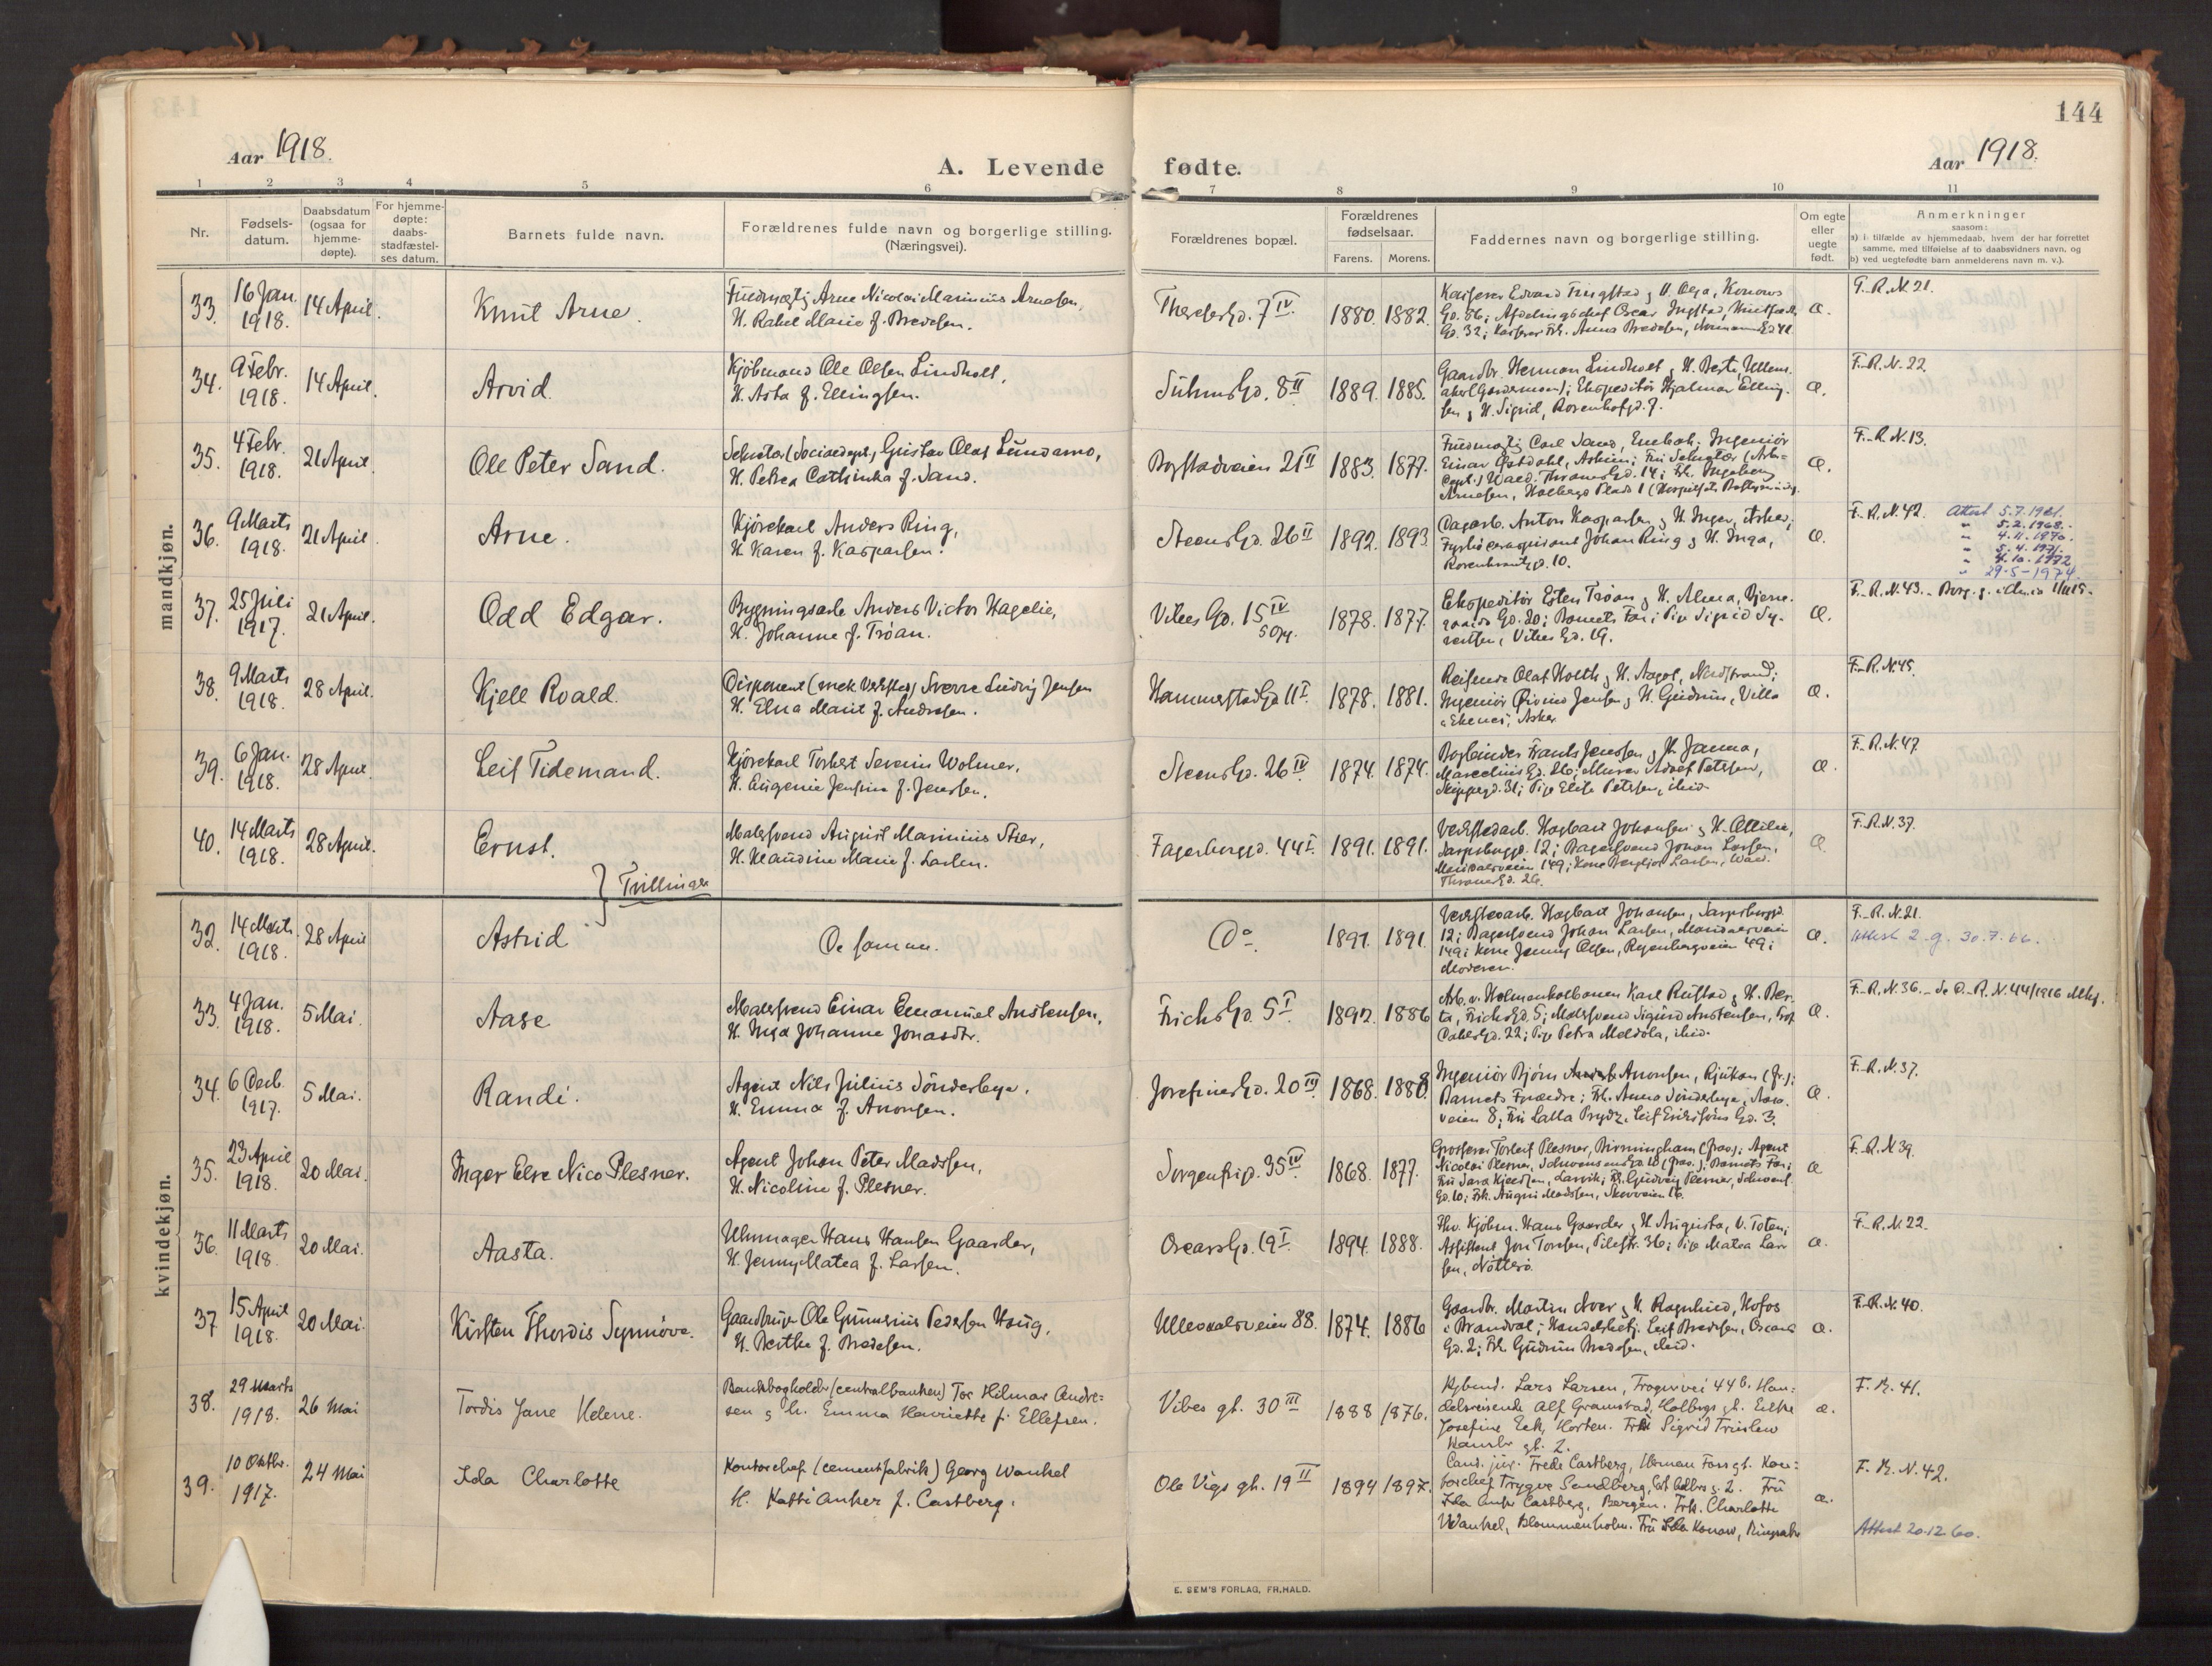 144
Aar 1918.
A. Levende fødte.
Aar 1918.
1 2 3 4 5 6 7 8 9 10 11
Nr.
Fødsels-
datum.
Daabsdatum
(ogsaa for
hjemme-
døpte).
For hjemme-
døpte:
daabs-
stadfæstel-
ses datum.
Barnets fulde navn.
Forældrenes fulde navn og borgerlige stilling.
(Næringsvei).
Forældrenes bopæl.
Forældrenes
fødselsaar.
Farens. Morens.
Faddernes navn og borgerlige stilling.
Om egte
eller
uegte
født.
Anmerkninger
saasom:
a) i tilfælde av hjemmedaab, hvem der har forrettet
samme, med tilføielse af to daabsvidners navn, og
b) ved uegtefødte barn anmelderens navn m. v.).
mandkjøn.
33. 16 Jan. 1918. 14 April. Knut Arne.
Arne Nicolai Marinius Arnesen,
H. Rakel Marie f. Bredesen.
Theresesgd. 7 IV. 1880. 1882.
Kasserer Edvard Tingstad & H. Olga, Konows
Gd. 56; Afdelingschef Oscar Ingstad,
Gd. 32; Kasserer Frk. Anna Bredesen,
Æ. F. R. N. 21.
34. 9 Febr. 1918. 14 April. Arvid.
Kjöbmand Ole Olsen Lindholt,
H. Asta f. Ellingsen.
Suhms Gd. 8 II 1889. 1885.
Gaardbr. Herman Lindholt & H. Berte, Ullens-
aker (Gardermoen); Ekspeditör Hjalmar Elling-
sen & H. Sigrid, Rosenhofgd. 7.
Æ. F. R. N. 22.
35. 4 Febr. 1918. 21 April. Ole Peter Sand.
Sekretær (Socialdept.) Gustav Olaf Lundamo,
H. Petra Cathinka f. Sand.
Bogstadveien 21 II 1883. 1877.
Carl Sand, Enebak; Ingeniör
Einar Østdahl, Askim; Fru Sekretær
Wald. Thranes Gd. 14; Frk. Ingeborg
Arnesen, Holbergs Plads 1
Æ. F. R. N. 13.
36. 9 Marts 1918. 21 April. Arne.
Kjörekarl Anders Ring,
H. Karen f. Kaspersen.
Steens Gd. 26 II 1892. 1893.
Dagarb. Anton Kaspersen & H. Inger, Asker;
Johan Ring & H. Inga,
Rosenkrantzgd. 10.
Æ. F. R. N. 42. Attest 5.7.1961.
" 5.2.1968.
" 4.11.1970.
" 5.4.1971.
" 4.10.1972
" 29-5-1974
37. 25 Juli 1917. 21 April. Odd Edgar.
Bygningsarb. Anders Victor Hagelie,
H. Johanne f. Tröan.
Vibes Gd. 15 IV
5 Opg. 1878. 1877.
Ekspeditör Esten Tröan & H. Alma, Bjerre-
gaards Gd. 20; Barnets Far; Pige Sigrid Sy-
vertsen, Vibes Gd. 19.
Æ. F. R. N. 43.
38. 9 Marts 1918. 28 April. Kjell Roald.
Disponent (mek. Verksted) Sverre Ludvig Jensen
H. Elna Marit f. Andresen.
Hammerstads Gd. 11 I. 1878. 1881.
Reisende Olaf Holth & H. Aagot, Nordstrand;
Ingeniör Öivind Jensen & H. Gudrun, Villa
"Ekenes", Asker
Æ. F. R. N. 45.
39. 6 Jan. 1918. 28 April. Leif Tidemand.
Kjörekarl Torbert Severin Wolmer,
H. Eugenie Jensine f. Jenssen.
Steens Gd. 26 IV 1874. 1874.
Bogbinder Frants Jenssen & H. Janna,
Marcelius Gd. 26; Murer Adolf Petersen,
Skippergd. 31; Pige Elise Petersen, ibid.
Æ. F. R. N. 47.
40. 14 Marts 1918. 28 April. Ernst.
Malersvend August Marinius Stier,
H. Klaudine Marie f. Larsen.
Fagerborggd. 44 I. 1891. 1891.
Verkstedarb. Hagbart Johansen & H. Ottilie,
Sarpsborggd. 12; Bagersvend Johan Larsen,
Maridalsveien 149; Kone Bergljot Larsen, Wald.
Thranes Gd. 26.
Æ. F. R. N. 37.
} Tvillinger
kvindekjøn.
32. 14 Marts 1918. 28 April Astrid
De samme.
Do. 1891. 1891.
Verkstedarb. Hagbart Johansen, Sarpsborggd.
12; Bagersvend Johan Larsen, Maridalsveien
149; Kone Jenny Olsen, 49;
Moderen.
Æ. F. R. N. 21.
Attest 2. g. 30.7.66.
33. 4 Jan. 1918. 5 Mai. Aase
Malersvend Einar Emanuel Austensen,
H. Inga Johanne Jonasdtr.
Frichs Gd. 5 I. 1892. 1886
Arb. v. Holmenkolbanen Karl Rustad & H. Ber-
ta, Frichs Gd. 5; Malersvend Sigurd Austensen, Prof.
Dahls Gd. 22; Pige Petra Meldola, ibid.
Æ. F. R. N. 36.
34. 6 Decb. 1917. 5 Mai. Randi.
Agent Nils Julius Sönderbye,
H. Emma f. Aronsen.
Josefines Gd. 20 III 1868. 1880.
Ingeniör Björn Aronsen, Rjukan (fr.);
Barnets Forældre; Frk. Anna Sönderbye,
veien 8; Fru Lalla Brydz, Leif Erikssöns Gd. 3.
Æ. F. R. N. 37.
35. 23 April 1918. 20 Mai. Inger Else Nico Plesner.
Agent Johan Peter Madssen,
H. Nicoline f. Plesner.
Sorgenfrigd. 35 IV 1868. 1877.
Grosserer Torleif Plesner, Birmingham (frav.); Agent
Nicolai Plesner, Schwensens Gd. 10 (frav.); Barnets Far;
Fru Sara Kjeldsen, Larvik; Frk. Gudveig Plesner, Schwens.
Gd. 10; Frk. Augusta Madssen, 16.
Æ F. R. N. 39.
36. 11 Marts 1918. 20 Mai. Aasta.
Uhrmager Hans Hansen Gaarder,
H. Jenny Matea f. Larsen.
Oscars Gd. 19 I. 1894. 1888.
Fhv. Kjöbm. Hans Gaarder & H. Augusta, V. Toten;
Assistent Jon Torsen, Pilestr. 36; Pige Matea Lar-
sen, Nötterö.
Æ. F. R. N. 22.
37 15 April 1918. 20 Mai. Kirsten Thordis Synnöve.
Gaardbruger Ole Gunnerius Pedersen Haug,
H. Berthe f. Bredesen.
Ullevaalsveien 88. 1874. 1886
Gaardbr. Martin Aver & H. Ragnhild, Hofos
i Brandval; Handelsbetj. Leif Bredesen, Oscars
Gd. 2; Frk. Gudrun Bredesen, ibid.
Æ. F. R. N. 40.
38. 29 Marts 1918. 26 Mai Tordis Jane Helene.
Bankbogholder (centralbanken) Tor Hilmar Andre-
sen & h. Emma Henriette f. Ellefsen.
Vibes gt. 30 III 1888 1876.
Lars Larsen, Frognervei 44 b. Han-
delsreisende Alf Gramstad, Holbergs gt. Enke
Josefine Eek, Horten. Frk Sigrid
gt. 2.
æ. F. R. 41.
39. 10 Oktbr. 1917. 24 Mai Ida Charlotte
Kontorchef (cementfabrik) Georg Wankel
H. Katti Anker f. Castberg.
Ole Vigs gt. 19 II 1894 1897.
Cand. jur. Frede Castberg, Herman Foss gt. Kon-
torchef Trygve Sandberg, 2. Fru
Ida Anker Castberg, Bergen. Frk. Charlotte
Wankel, Blommenholm. Fru Ida Konow,
æ. F. R. N. 42.
Attest 20.12.60.
E. SEM'S FORLAG, FR.HALD.